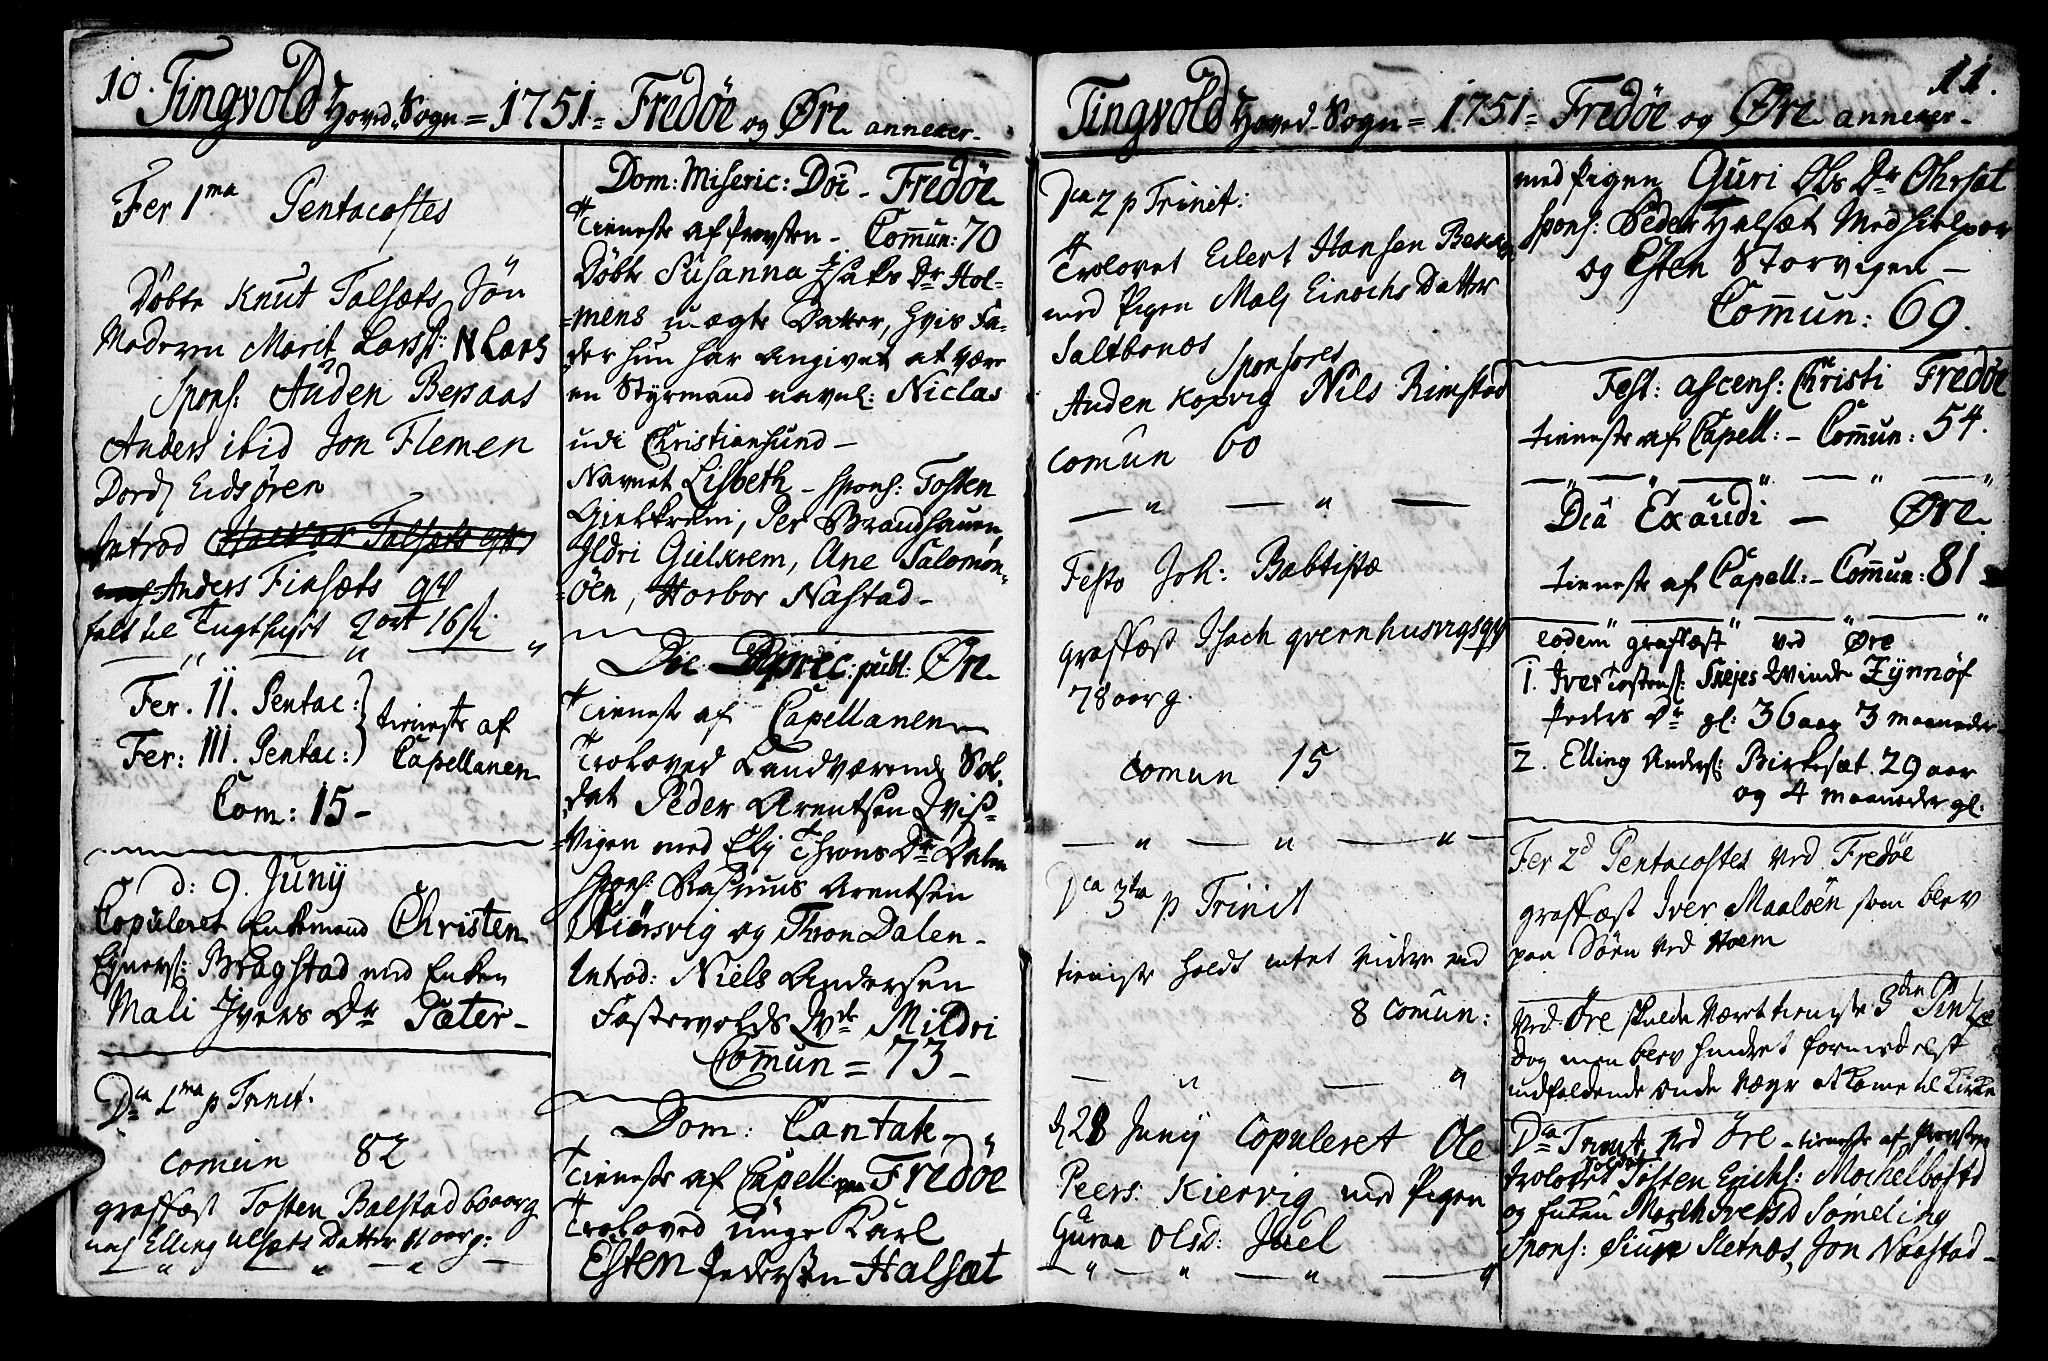 10. Tingvold Hoved-Sogn = 1751 = Fredöe og Øre annexer
Fer 1ma Pentacostes
Döbte Knut Talsæts Sön
Moderen Marit Larsd: N Lars
Spons: Auden Bersaas
Anders ibid Jon Flemen
Dordj Eidsören
Introd Halvor Talsæts qv
Anders Finsæts qv
falt til Tugthuset 2 ort 16 sk
Fer. II. Pentac:
Fer: III. Pentac: tieneste af Capellanen
Com: 15
d: 9. Junij
Copuleret Enkemand Christen
Ejners: Bragstad med Enken
Mali Ivers Dr Sæter
Dca 1ma p Trinit.
comun 82
graffæst Tosten Balstad 60 aarg
Elling Ulsæts Datter 11 aarg:
Dom: Miseric: Dni - Fredöe
Tieneste af Provsten - Comun: 70
Döbte Susanna Isaks Dr Hol-
mens uægte Datter, hvis Fa-
der hun har angivet at være
en Styrmand navnl: Niclas
udi Christiansund
Navnet Lisbeth - Spons: Tosten
Gielkrem, Per Brandhauen,
Ildri Gielkrem, Ane Salomon-
öen, Horbor Nastad
Die Deprec: publ: Øre
Tieneste af Capellanen
Troloved Landværende Sol-
dat Peder Arentsen
Vigen med Elj Throns Dr Dalen
Spons: Rasmus Arentsen
og Thron Dalen
Introd: Niels Andersen
Fostervolds Qvde Mildri
Comun = 73
Dom: Cantate
Tieneste af Capell: paa Fredöe
Troloved unge Karl
Esten Pedersen Halsæt
Tingvold Hoved-Sogn = 1751 = Fredöe og Øre annexer 11.
Dca 2 p Trinit:
Trolovet Eilert Hansen
med Pigen Malj Einochs Datter
Saltbones
Sponsores
Auden Kopvig Nils Rimstad
comun 60
Festo Joh: Babtistæ
graffæst Isach qvernhusvigs qv
78 aar g.
comun 15
Dca 3tia p Trinit
tieniste holdt intet videre end
8 comun:
d 28 Junij Copuleret Ole
Peers. Kiervig med Pigen
Guraa Olsd: Juel
med Pigen Guri Ols Dr Ohrsæt
Spons: Peder Halsæt Medhielper
og Esten Storvigen
Comun: 69.
Fest: ascens: Christi Fredöe
tieneste af Capell: - Comun: 54.
Dca Exaudi - Øre
tieneste af Capell: - Comun: 81
eodem graffæst ved Øre
1. Iver Tostens: Qvinde Zynnöf
Peders Dr gl: 36 aar 3 maaneder
2. Elling Anders: Birkesæt 29 aar
og 4 maaneder gl:
Fer 2d Pentacostes ved Fredöe
graffæst Iver Maalöen som blev
paa Söen ved Hoem
Ved Øre skulde været tieniste 3die Pintze
dag men blev hindret formedelst
indfaldende onde Veyr at kome til Kirke
Dca Trinit ved Öre - tieneste af Provsten
trolovet Soldat Tosten Erichs: Mochelbostd
og Enken Marit Iversd Sömeling
Spons: Siur Sletnes, Jon Naastad